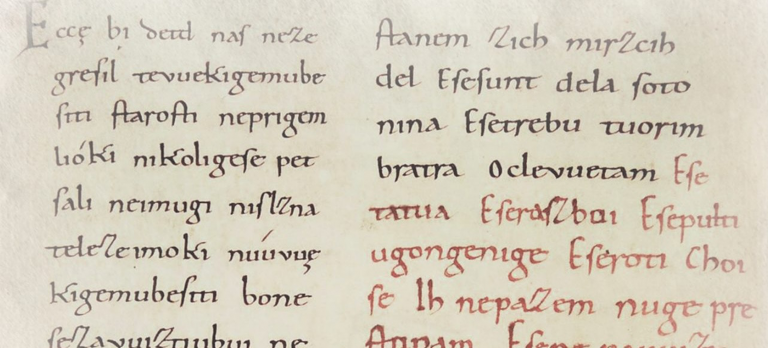 Ecce bi detd naſ neze
greſil tevuekigemube
ſiti ſtaroſti neprigem
lióki nikoligeſe pet
ſali neimugi niſlzna
telezeimoki nuúvuę
kigemubeſiti bone
ſtanem zich mirzcih
del Eſeſunt dela ſoto
nina Eſetrebu tuorim
bratra Oclevuetam Eſe
tatua Eſeraſzboi Eſepulti
ugongenige Eſeroti Choi
ſe Ih nepazem nuge pre